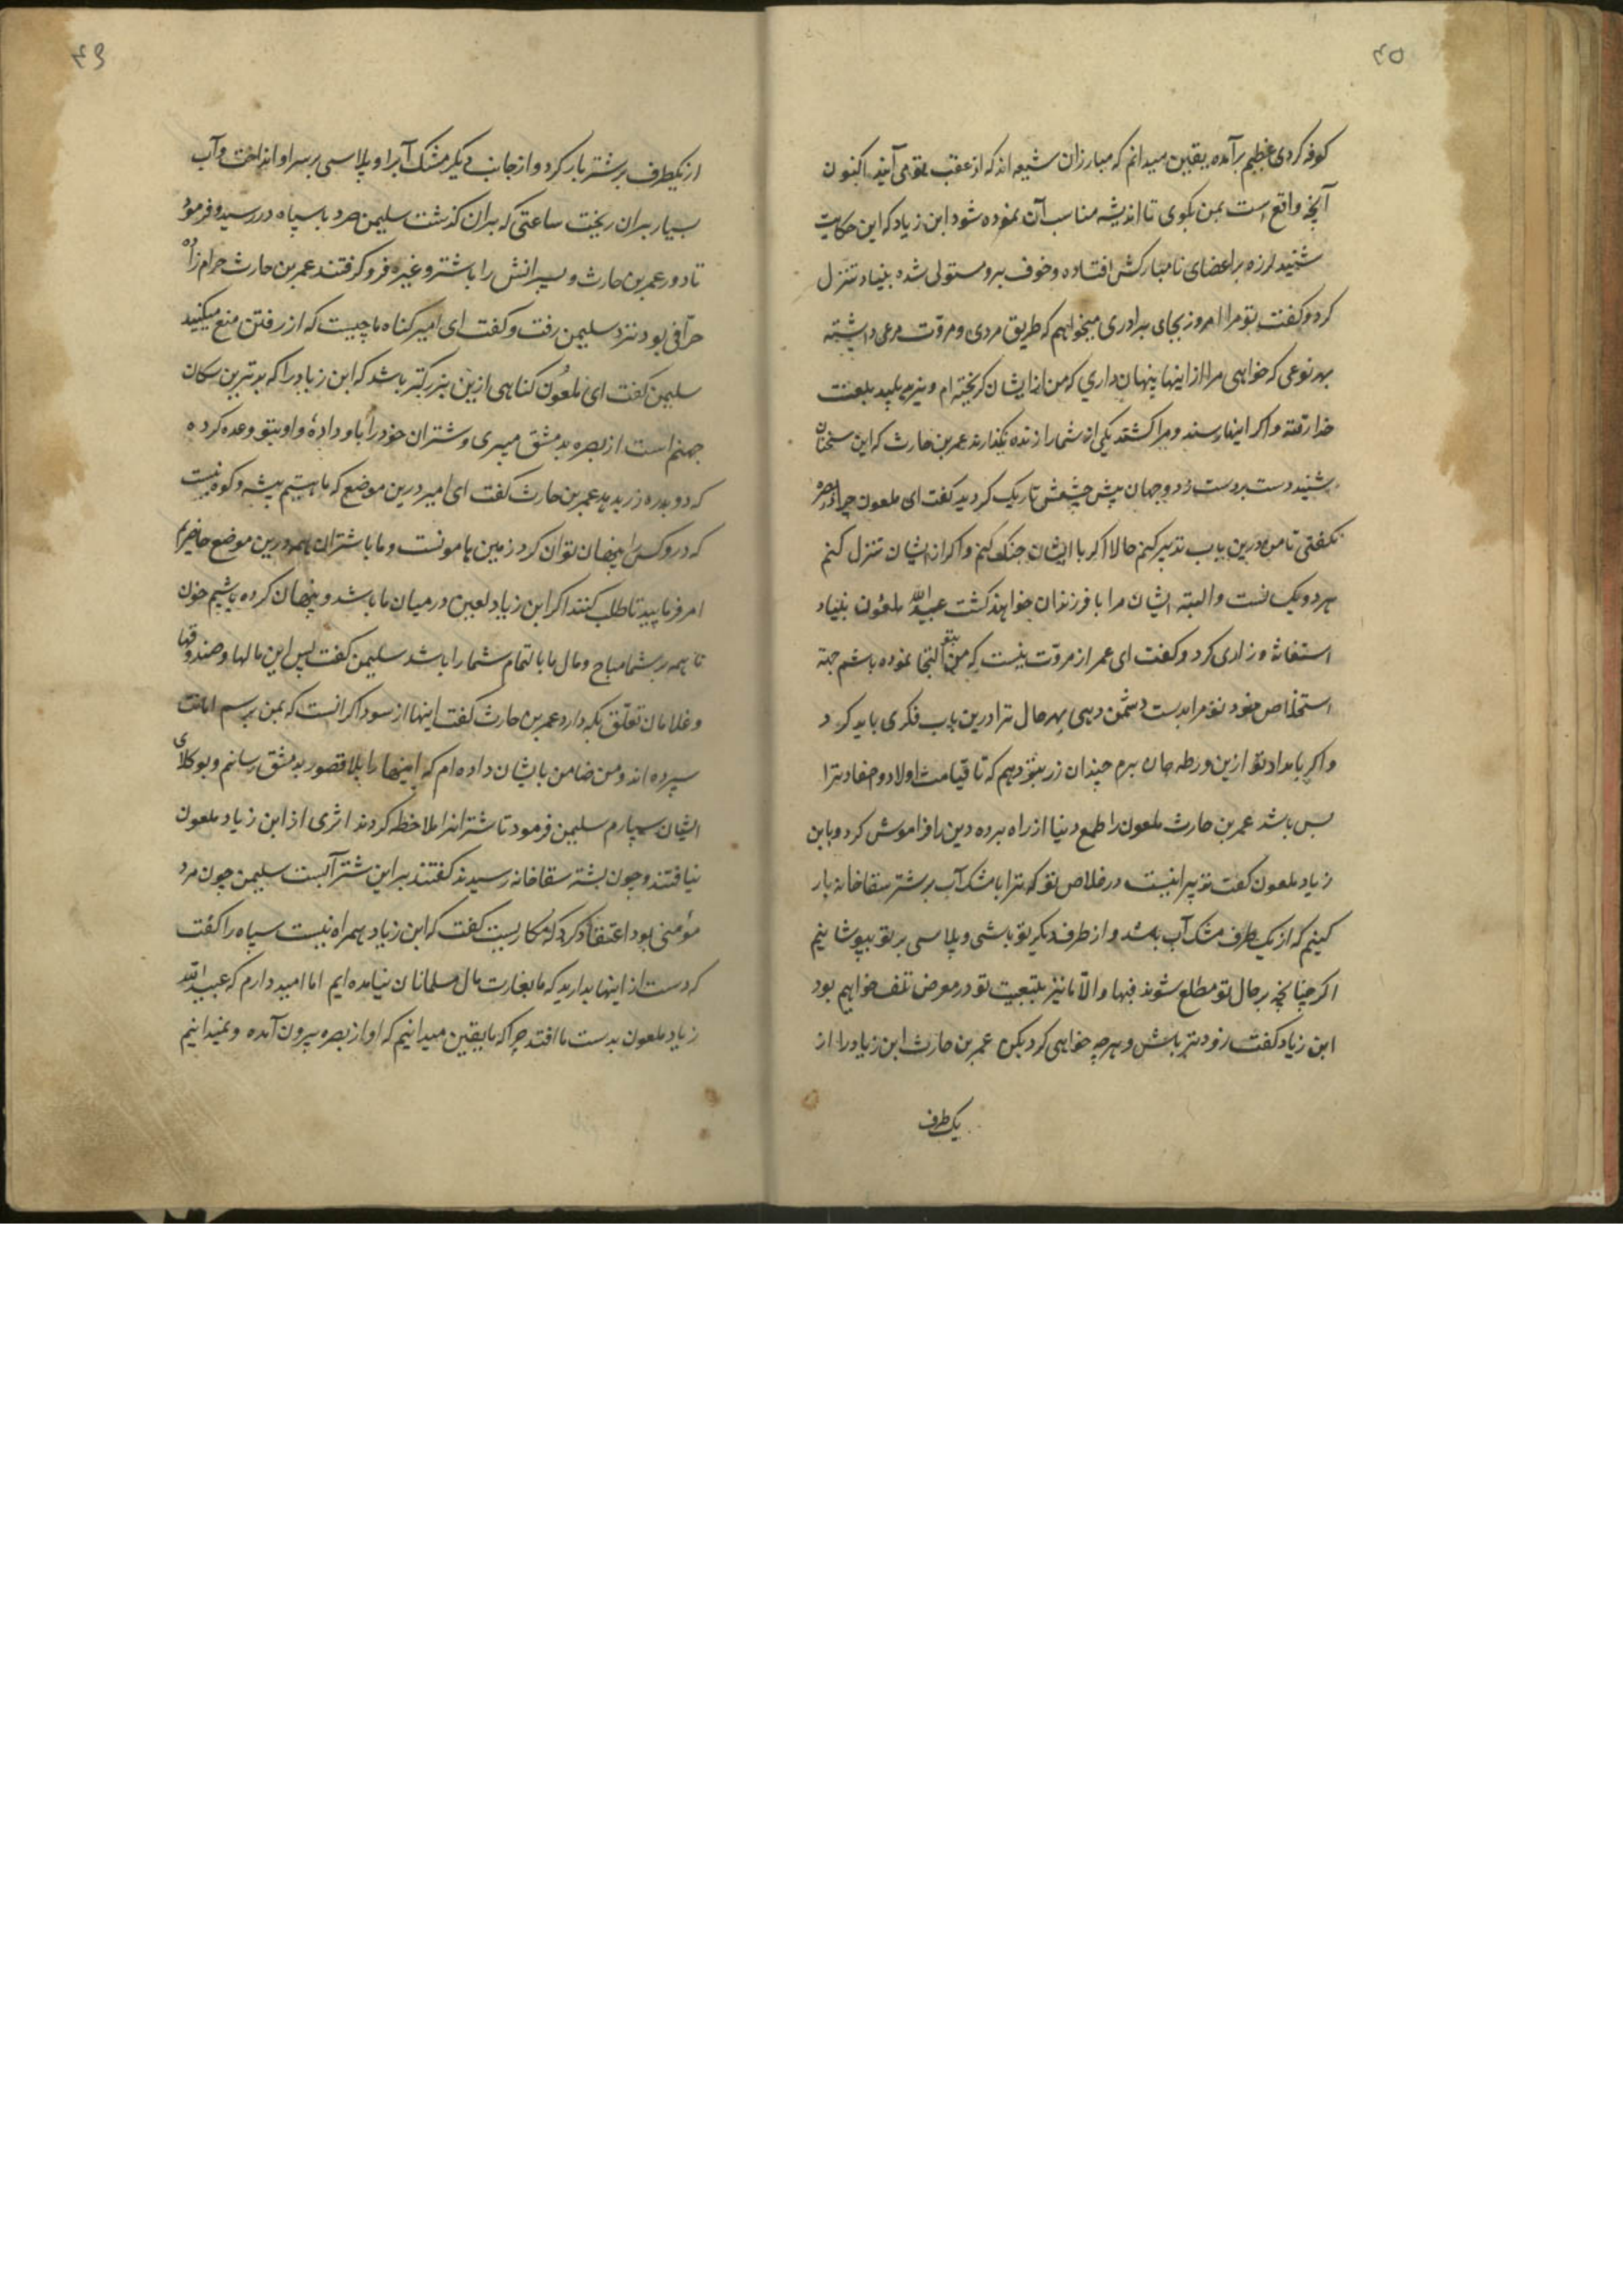 ۴۵
کوفه کردی عظیم برآمده یقین میدانم که مبارزان شیعه اند که از عقب تو می آیند اکنون
آنچه واقع است بمن بکوی تا اندیشه مناسب آن نموده شود ابن زیاد که این حکایت
شنید لرزه بر اعضای نامبارکش افتاده و خوف برو مستولی شده بنیاد تنزل
کرد و کفت تو مرا امروز بجای برادری میخواهم که طریق مردی و مروّت مرعی داشته
بهر نوعی که خواهی مرا از اینها پنهان داری که من از ایشان کریخته ام و یزید پلید بلعنت
خدا رفته و اکر اینها رسند و مرا کشتند یکی از شما را زنده نکذارند عمر بن حارث که این سخنان
شنید دست بردست زد و جهان پیش چشمش تاریک کردید کفت ای ملعون چرا در بصره
نکفتی تا من درین باب تدبیر کنم حالا اکر با ایشان جنک کنم و اکر از ایشان تنزل کنم
هر دو یک نست و البته ایشان مرا با فرزندان خواهند کشت عبید الله ملعون بنیاد
استغاثه و زاری کرد و کفت ای عمر از مروّت نیست که من بتو التجا نموده باشم جهة
استخلاص خود تو مرا بدست دشمن دهی بهر حال ترا درین باب فکری باید کرد
و اکر بامداد تو ازین ورطه جان برم چندان زر بتو دهم که تا قیامت اولاد و احفاد ترا
بس باشد عمر بن حارث ملعون را طمع دنیا از راه برده دین را فراموش کرد و بابن
زیاد ملعون کفت تدبیر اینست در خلاص تو که ترا با مشک آب بر شتر سقاخانه بار
کنیم که از یک طرف مشک آب باشد و از طرف دیکر تو باشی و پلاسی بر تو بپوشانیم
اکر چنانچه بر حال تو مطلع شوند فبها و الّا ما نیز بتبعیت تو در معرض تلف خواهیم بود
ابن زیاد کفت زودتر باش و هرچه خواهی کرد بکن عمر بن حارث ابن زیاد را از
یک طرف
۴۶
از یکطرف بر شتر بار کرد و از جانب دیکر مشک آبرا و پلاسی بر سر او انداخت و آب
بسیار بران ریخت ساعتی که بران کذشت سلیمن صرد با سپاه در رسید و فرمود
تا دور عمر بن حارث و پسرانش را با شتر و غیره فرو کرفتند عمر بن حارث حرام زاده
حرّافی بود نزد سلیمن رفت و کفت ای امیر کناه ما چیست که از رفتن منع میکنید
سلیمن کفت ای ملعون کناهی ازین بزرکتر باشد که ابن زیاد را که بدترین سکان
جهنم است از بصره بدمشق میبری و شتران خود را باو دادهٔ و او بتو وعده کرده
که دو بدره زر بدهد عمر بن حارث کفت ای امیر درین موضع که ما هستیم بیشه و کوه نیست
که درو کس را پنهان توان کرد زمین هامونست و ما با شتران همه درین موضع حاضریم
امر فرمایید تا طلب کنند اکر ابن زیاد لعین در میان ما باشد و پنهان کرده باشیم خون
ما همه بر شما مباح و مال ما بالتمام شما را باشد سلیمن کفت پس این مالها و صندوقها
و غلامان تعلّق بکه دارد عمر بن حارث کفت اینها از سوداکرانست که بمن برسم امانت
سپرده اند و من ضامن بایشان داده ام که اینها را بلا قصور بدمشق رسانم و بوکلای
ایشان سپارم سلیمن فرمود تا شترانرا ملاحظه کردند اثری از ابن زیاد ملعون
نیافتند و چون بشتر سقاخانه رسیدند کفتند بر این شتر آبست سلیمن چون مرد
مؤمنی بود اعتقاد کرد که مکاریست کفت که ابن زیاد همراه نیست سپاه را کفت
که دست از اینها بدارید که ما بغارت مال مسلمانان نیامده ایم اما امید دارم که عبید الله
زیاد ملعون بدست ما افتد چرا که ما یقین میدانیم که او از بصره بیرون آمده و نمیدانیم